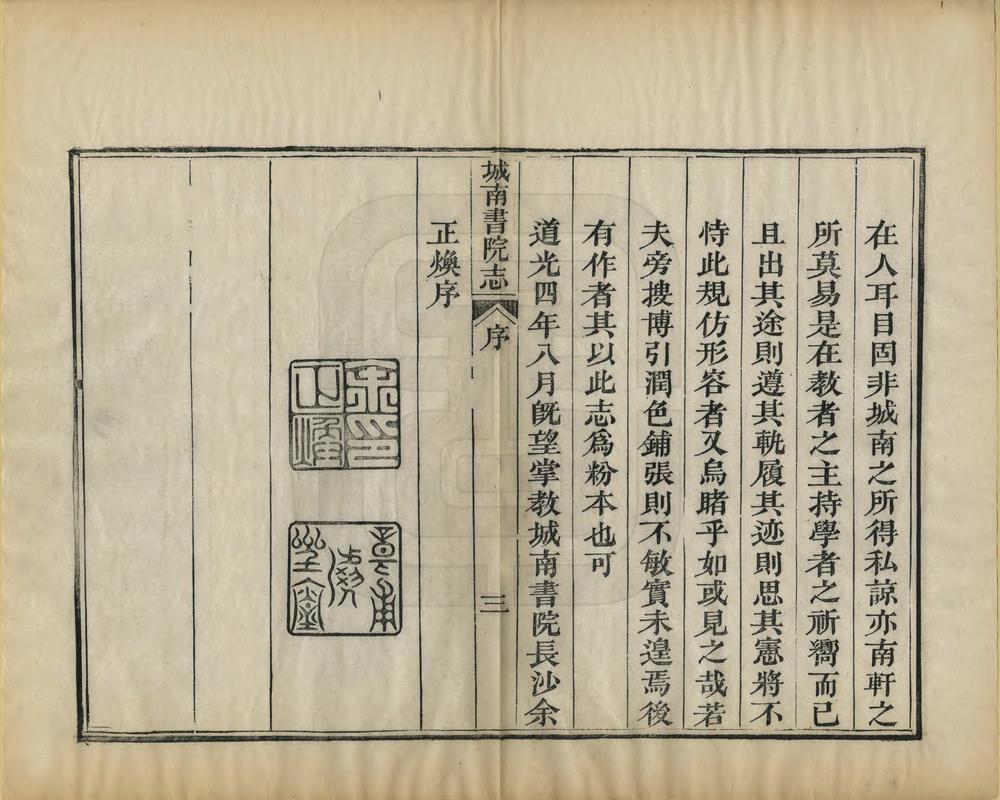 在人耳目固非城南之所得私諒亦南軒之
所莫易是在教者之主持學者之祈嚮而已
且出其途則遵其軌履其迹則思其憲將不
恃此規仿形容者又烏睹乎如或見之哉若
夫旁搜博引潤色鋪張則不敏實未遑焉後
有作者其以此志爲粉本也可
道光四年八月旣望掌教城南書院長沙余
城南書院志
序
三
正煥序
余印正煥